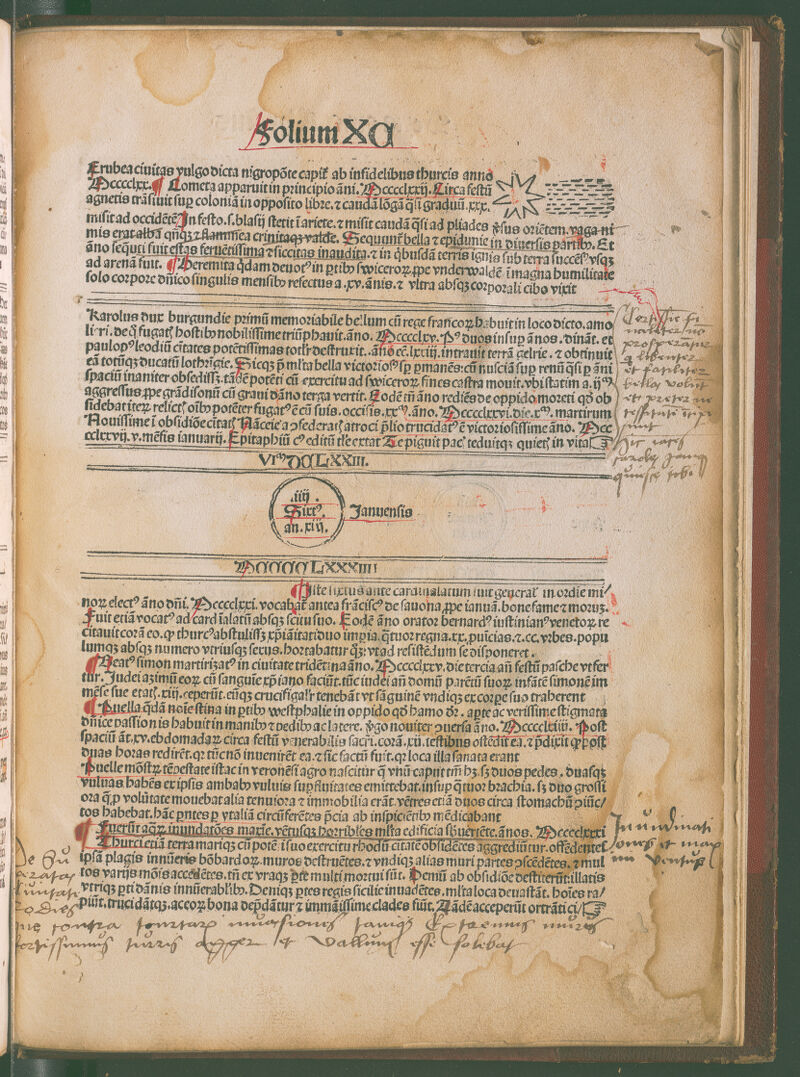 Folium XC
Erubea ciuitas vulgo dicta nigropōte capiť ab infidelibus thurcis anno
Mcccclxx. ¶ Cometa apparuit in principio āni. Mcccclxxij. Circa festū
agnetis trāsiuit suꝑ coloniā in opposito libre. ⁊ caudā lōgā q̄si graduū .xxx.
misit ad occidētē. In festo .s. blasij stetit ī ariete. ⁊ misit caudā q̄si ad pliades ꝟsus oriētem. vaga-ni
mis erat albā ⁊ flammea crinitaqꝫ valde. Sequunť bella ⁊ epidimie in diuersis partibꝰ. Et
āno seq̄uti fuit estas feruētissima ⁊ siccitas inaudita. ⁊ in q̄busdā terris ignis sub terra succēsꝰ vsqꝫ
ad arenā fuit. ¶ Heremita q̄dam deuotꝰ in ꝑtibꝰ swiceroꝝ ꝓpe vnderwaldē ī magna humilitate
solo corpore dn̄ico singulis mensibꝰ refectus a .xv. ānis. ⁊ vltra absqꝫ corporali cibo vixit
Karolus dux burgundie primū memoriabile bellum cū rege francoꝝ habuit in loco dicto. amo
li ri. de q̄ fugatꝭ hostibꝰ nobilissime triūphauit. āno. Mcccclxv. Pꝰ duos insuꝑ ānos. dināt. et
paulopꝰ leodiū ciuitates potētissimas totlr̄ destruxit. āno .lxxiij. intrauit terrā gelrie. ⁊ obtinuit
eā totūqꝫ ducatū lothrīgie. Sicqꝫ ꝑ ml̄ta bella victoriosꝰ sꝑ ꝑmanēs: cū nusciā suꝑ renū q̄si ꝑ āni
spaciū inaniter obsedisset. tādē potēti cū exercitu ad swiceroꝝ fines castra mouit. vbi statim a .ij
aggressus ꝓpe grādisonū cū graui dāno terga vertit. Eodē āno rediēs de oppido moreti qd̄ ob
sidebat iteꝝ relictꝭ oībꝰ potēter fugatꝰ ē cū suis. occisis .xxᵐ. āno. Mcccclxxvi. die .xᵐ. martirum
Nouissime ī obsidiōe ciutatꝭ Nāceie a ꝯfederatꝭ atroci p̄lio trucidatꝰ ē victoriosissime āno. Mcc
cclxxvij. v. mēsis ianuarij. Epitaphiū eꝰ editū tale extat Te piguit pacꝭ teduitqꝫ quietꝭ in vita
VIᵐDCLXXIII.
.iiij.
Sixtꝰ.
an. xiij.
Januensis
MCCCCLXXXIIII
¶ Iste sixtus ante cardinalatum fuit general' in ordīe mi/
noꝝ electꝰ āno dn̄i. Mcccclxxi. vocabať antea frāciscꝰ de sauona ꝓpe ianuā. bone fame ⁊ moꝝ.
Fuit etiā vocatꝰ ad cardīalatū absqꝫ scitu suo. Eodē āno orator bernardꝰ iustinianꝰ venetoꝝ re
citauit corā eo. ꝙ thurcꝰ abstulisset xp̄ianitati duo impia. q̄tuor regna. xx. ꝓuīcias. ⁊ .cc. vrbes. popu
lumqꝫ absqꝫ numero vtriusqꝫ sexus. hortabatur qꝫ: vt ad resistēdum se disponeret.
¶ Beatꝰ simon martirizatꝰ in ciuitate tridētina āno. Mcccclxxv. die tercia an̄ festū pasche vt fer
tur. Judei azimū eoꝝ cū sanguīe xp̄iano faciūt. tūc iudei an̄ domū parētū suoꝝ infātē simonē im
mēse sue etatꝭ .xiij. ceperūt. eūqꝫ crucifigalr̄ tenebāt vt sāguinē vndiqꝫ ex corꝑe suo traherent
¶ Puella q̄dā noīe stina in ꝑtibꝰ westphalie in oppido qd̄ hamo dr̄. aꝑte ac verissime stigmata
dn̄ice passionis habuit in manibꝰ ⁊ pedibꝰ ac latere. ꝟgo nouiter ꝯuersa āno. Mcccclxiiij. Post
spaciū an̄t. xv. ebdomadaꝝ circa festū venerabilis sacri. corā .xij. testibus ostēdit ea. ⁊ p̄dixit ꝙ post
duas horas rediret. qr̄ tūc nō inuenirēt ea. ⁊ sic factū fuit. qr̄ loca illa sanata erant
Puelle mōstꝝ tēpestate istac in veronēsi agro nascitur q̄ vnū caput tm̄ hꝫ. sꝫ duos pedes. duasqꝫ
vuluas habēs ex ipsis ambabꝰ vuluis suꝑfluitates emittebat. insuꝑ q̄tuor brachia. sꝫ duo grossi
ora q̄ ꝑ volūtate mouebat alia tenuiora ⁊ immobilia erāt. vētres etiā duos circa stomachū ꝯiūc/
tos habebat. hāc ꝑntes ꝑ ytaliā circūferētes p̄cia ab inspiciētibꝰ mēdicabant
¶ Fuerūt aq̄ꝝ inundatōes maxīe. vētusqꝫ horribiles ml̄ta edificia sb̄uertēte. ānos. Mcccclxxxi
Thurci etiā terra mariqꝫ cū potē ti suo exercitu rhodū ciutatē obsidētes aggrediūtur. offēdentes
ipsā plagis innūeris bōbardoꝝ. muros destruētes. ⁊ vndiqꝫ alias muri partes ꝓscēdētes. ⁊ mul
tos varijs mōis accedētes. tn̄ ex vtraqꝫ ꝑte multi mortui sūt. Demū ab obsidiōe destiterūt: illatis
vtriqꝫ ꝑti dānis innūerabilibꝰ. Deniqꝫ ꝑtes regis sicilie inuadētes. ml̄ta loca deuastāt. hoīes ra/
piūt. trucidātqꝫ. ac eoꝝ bona dep̄dātur ⁊ immāissime clades fiūt. Tādē acceperūt
Inundati
ones et max
ventus
contra muris
fortissimus turris agger et Vallum esse solebat